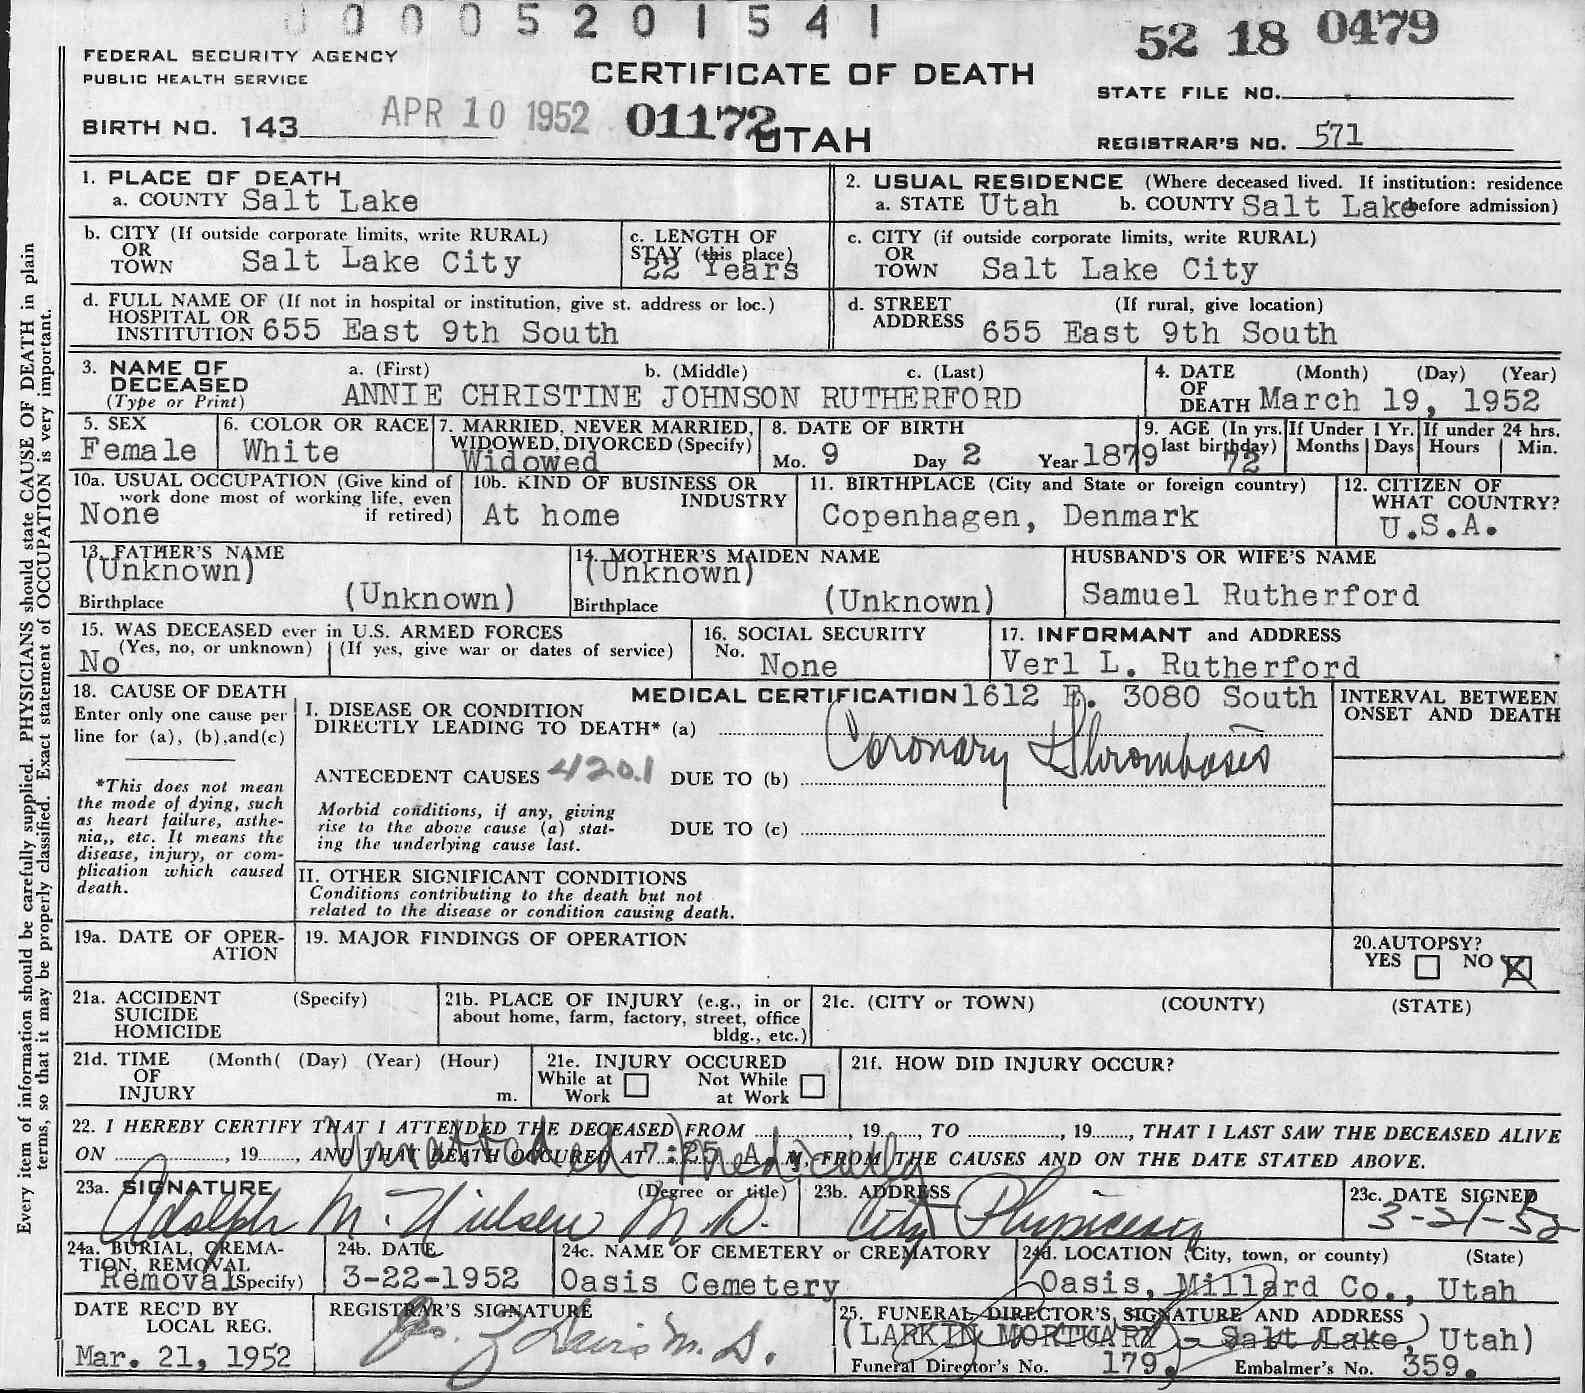 0 0 0 5 2 0 1 5 4 1
52 18 0479
FEDERAL SECURITY AGENCY
PUBLIC HEALTH SERVICE
CERTIFICATE OF DEATH
STATE FILE NO.
BIRTH NO. 143 APR 10 1952 01172 UTAH
REGISTRAR'S NO. 571
1. PLACE OF DEATH
a. COUNTY Salt Lake
2. USUAL RESIDENCE (Where deceased lived. If institution: residence
a. STATE Utah b. COUNTY Salt Lake before admission)
b. CITY (If outside corporate limits, write RURAL)
OR
TOWN Salt Lake City
c. LENGTH OF
STAY (this place)
22 Years
c. CITY (if outside corporate limits, write RURAL)
OR
TOWN Salt Lake City
d. FULL NAME OF (If not in hospital or institution, give st. address or loc.)
HOSPITAL OR
INSTITUTION 655 East 9th South
d. STREET (If rural, give location)
ADDRESS 655 East 9th South
3. NAME OF a. (First) b. (Middle) c. (Last)
DECEASED
(Type or Print) ANNIE CHRISTINE JOHNSON RUTHERFORD
4. DATE (Month) (Day) (Year)
OF
DEATH March 19, 1952
5. SEX
Female
6. COLOR OR RACE
White
7. MARRIED, NEVER MARRIED,
WIDOWED, DIVORCED (Specify)
Widowed
8. DATE OF BIRTH
Mo. 9 Day 2 Year 1879
9. AGE (In yrs.
last birthday)
72
If Under 1 Yr.
Months Days
If under 24 hrs.
Hours Min.
10a. USUAL OCCUPATION (Give kind of
work done most of working life, even
None if retired)
10b. KIND OF BUSINESS OR
INDUSTRY
At home
11. BIRTHPLACE (City and State or foreign country)
Copenhagen, Denmark
12. CITIZEN OF
WHAT COUNTRY?
U.S.A.
13. FATHER'S NAME
(Unknown)
Birthplace (Unknown)
14. MOTHER'S MAIDEN NAME
(Unknown)
Birthplace (Unknown)
HUSBAND'S OR WIFE'S NAME
Samuel Rutherford
15. WAS DECEASED ever in U.S. ARMED FORCES
(Yes, no, or unknown) (If yes, give war or dates of service)
No
16. SOCIAL SECURITY
No. None
17. INFORMANT and ADDRESS
Verl L. Rutherford
18. CAUSE OF DEATH
Enter only one cause per
line for (a), (b),and(c)
*This does not mean
the mode of dying, such
as heart failure, asthe-
nia,, etc. It means the
disease, injury, or com-
plication which caused
death.
MEDICAL CERTIFICATION 1612 E. 3080 South
I. DISEASE OR CONDITION
DIRECTLY LEADING TO DEATH* (a) Coronary Thrombosis
ANTECEDENT CAUSES 420.1 DUE TO (b)
Morbid conditions, if any, giving
rise to the above cause (a) stat-
ing the underlying cause last.
DUE TO (c)
INTERVAL BETWEEN
ONSET AND DEATH
II. OTHER SIGNIFICANT CONDITIONS
Conditions contributing to the death but not
related to the disease or condition causing death.
19a. DATE OF OPER-
ATION
19. MAJOR FINDINGS OF OPERATION
20.AUTOPSY?
YES NO X
21a. ACCIDENT (Specify)
SUICIDE
HOMICIDE
21b. PLACE OF INJURY (e.g., in or
about home, farm, factory, street, office
bldg., etc.)
21c. (CITY or TOWN) (COUNTY) (STATE)
21d. TIME (Month( (Day) (Year) (Hour)
OF
INJURY m.
21e. INJURY OCCURED
While at Not While
Work at Work
21f. HOW DID INJURY OCCUR?
22. I HEREBY CERTIFY THAT I ATTENDED THE DECEASED FROM , 19 , TO , 19 , THAT I LAST SAW THE DECEASED ALIVE
ON , 19 , AND THAT DEATH OCCURED AT 7:25 A. M, FROM THE CAUSES AND ON THE DATE STATED ABOVE.
Unattended medically
23a. SIGNATURE (Degree or title)
Adolph M. Nielsen M.D.
23b. ADDRESS
City Physician
23c. DATE SIGNED
3-21-52
24a. BURIAL, CREMA-
TION, REMOVAL
Removal Specify)
24b. DATE
3-22-1952
24c. NAME OF CEMETERY or CREMATORY
Oasis Cemetery
24d. LOCATION (City, town, or county) (State)
Oasis, Millard Co., Utah
DATE REC'D BY
LOCAL REG.
Mar. 21, 1952
REGISTRAR'S SIGNATURE
M.D.
25. FUNERAL DIRECTOR'S SIGNATURE AND ADDRESS
(LARKIN MORTUARY - Salt Lake, Utah)
Funeral Director's No. 179. Embalmer's No. 359.
Every item of information should be carefully supplied. PHYSICIANS should state CAUSE OF DEATH in plain
terms, so that it may be properly classified. Exact statement of OCCUPATION is very important.